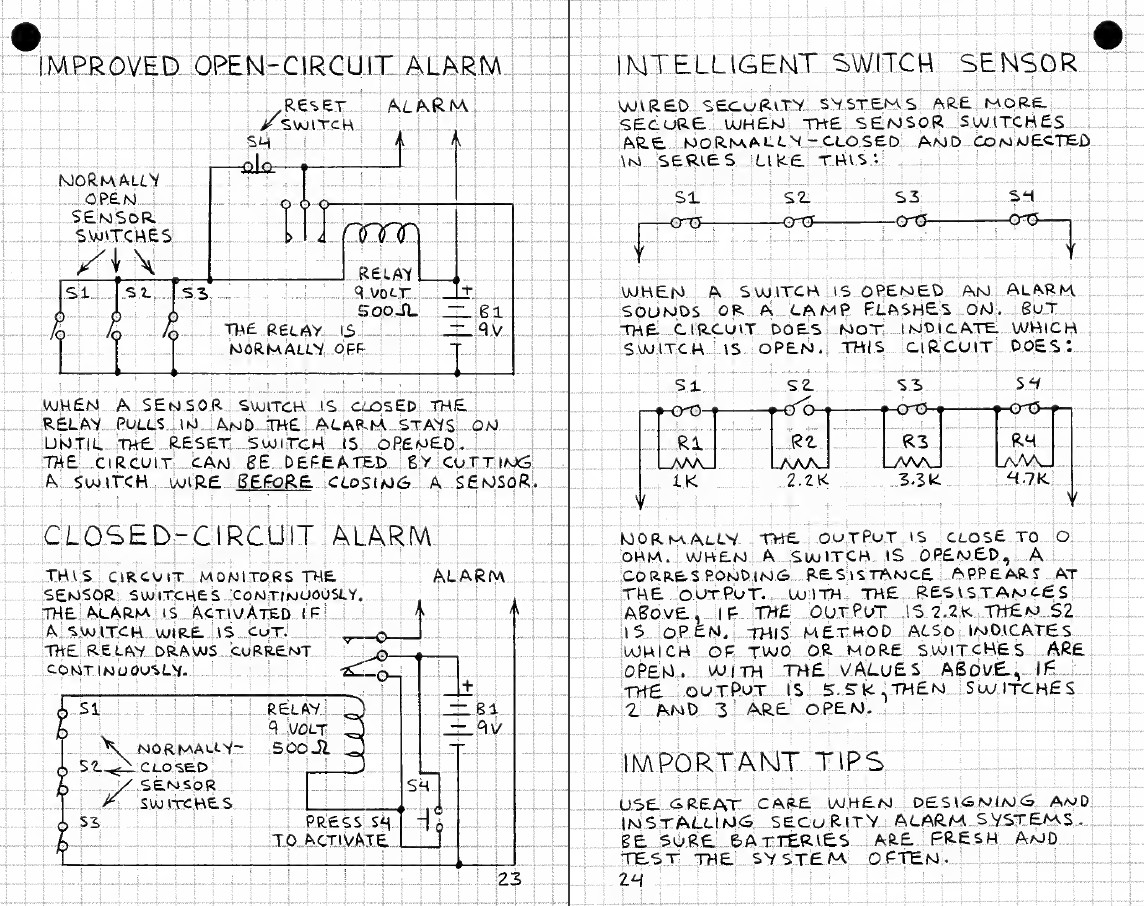 IMPROVED OPEN-CIRCUIT ALARM
RESET
SWITCH
ALARM
S4
NORMALLY
OPEN
SENSOR
SWITCHES
S1
S2
S3
RELAY
9 VOLT
500Ω
+
B1
9V
THE RELAY IS
NORMALLY OFF
WHEN A SENSOR SWITCH IS CLOSED THE
RELAY PULLS IN AND THE ALARM STAYS ON
UNTIL THE RESET SWITCH IS OPENED.
THE CIRCUIT CAN BE DEFEATED BY CUTTING
A SWITCH WIRE BEFORE CLOSING A SENSOR.
CLOSED-CIRCUIT ALARM
THIS CIRCUIT MONITORS THE
SENSOR SWITCHES CONTINUOUSLY.
THE ALARM IS ACTIVATED IF
A SWITCH WIRE IS CUT.
THE RELAY DRAWS CURRENT
CONTINUOUSLY.
ALARM
S1
S2
S3
NORMALLY-
CLOSED
SENSOR
SWITCHES
RELAY
9 VOLT
500Ω
+
B1
9V
S4
PRESS S4
TO ACTIVATE
23
INTELLIGENT SWITCH SENSOR
WIRED SECURITY SYSTEMS ARE MORE
SECURE WHEN THE SENSOR SWITCHES
ARE NORMALLY-CLOSED AND CONNECTED
IN SERIES LIKE THIS:
S1 S2 S3 S4
WHEN A SWITCH IS OPENED AN ALARM
SOUNDS OR A LAMP FLASHES ON. BUT
THE CIRCUIT DOES NOT INDICATE WHICH
SWITCH IS OPEN. THIS CIRCUIT DOES:
S1 S2 S3 S4
R1 R2 R3 R4
1K 2.2K 3.3K 4.7K
NORMALLY THE OUTPUT IS CLOSE TO 0
OHM. WHEN A SWITCH IS OPENED, A
CORRESPONDING RESISTANCE APPEARS AT
THE OUTPUT. WITH THE RESISTANCES
ABOVE, IF THE OUTPUT IS 2.2K THEN S2
IS OPEN. THIS METHOD ALSO INDICATES
WHICH OF TWO OR MORE SWITCHES ARE
OPEN. WITH THE VALUES ABOVE, IF
THE OUTPUT IS 5.5K, THEN SWITCHES
2 AND 3 ARE OPEN.
IMPORTANT TIPS
USE GREAT CARE WHEN DESIGNING AND
INSTALLING SECURITY ALARM SYSTEMS.
BE SURE BATTERIES ARE FRESH AND
TEST THE SYSTEM OFTEN.
24